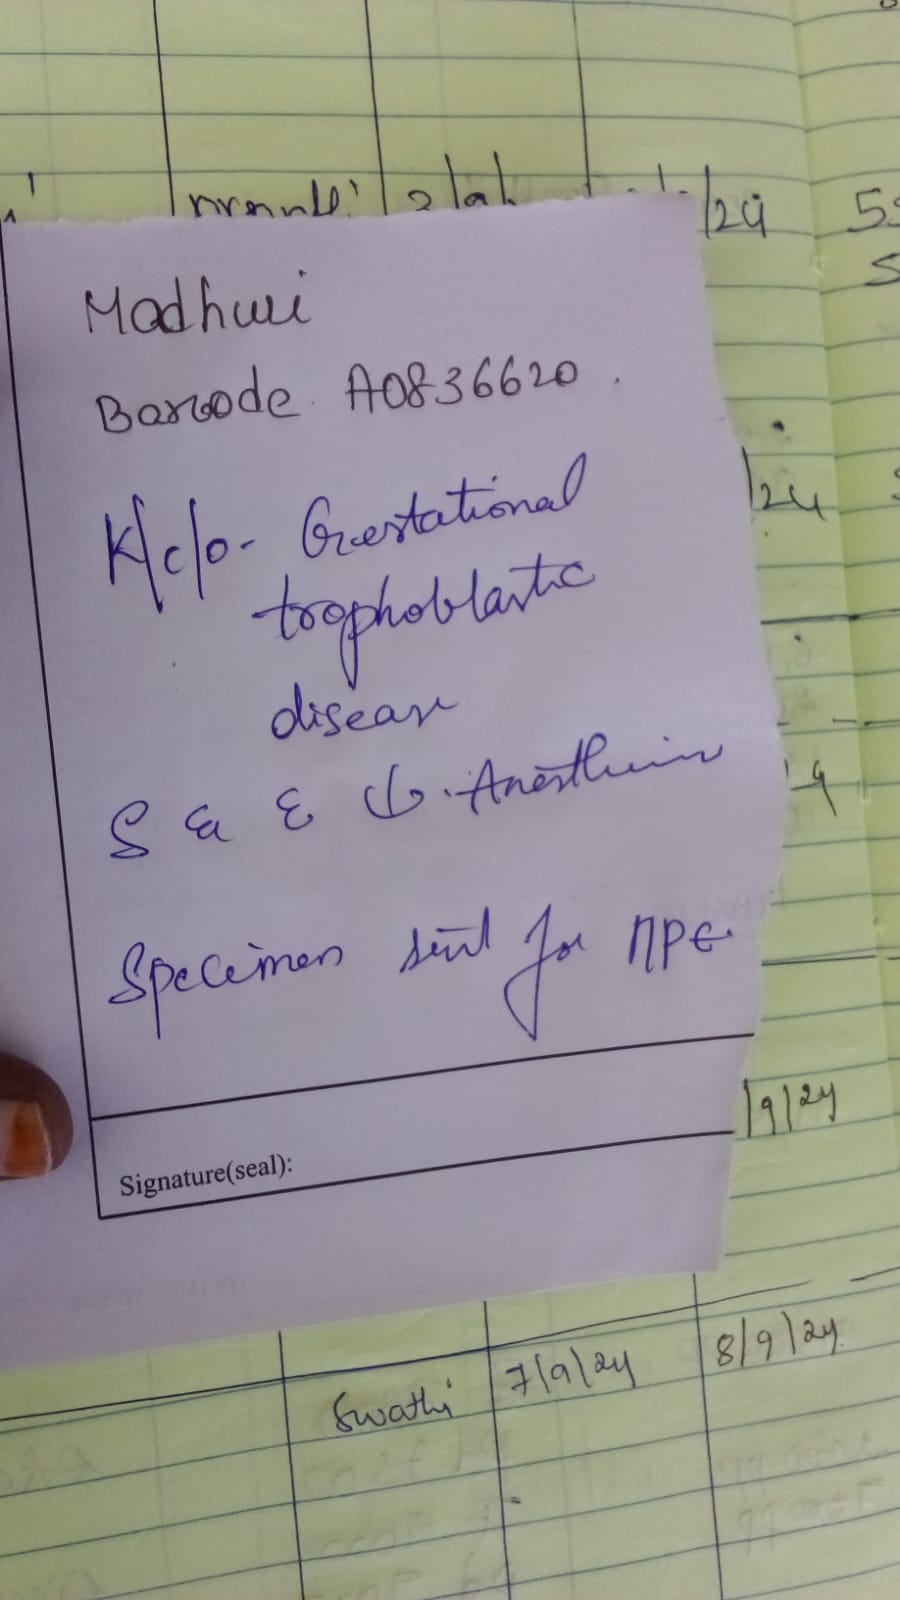 /24
Madhuri
Barcode A0836620.
/24
K/c/o- Gestational
trophoblastic
disease
S & E Anesthesia
Specimen sent for HPE.
/9/24
Signature(seal):
Swathi 7/9/24 8/9/24